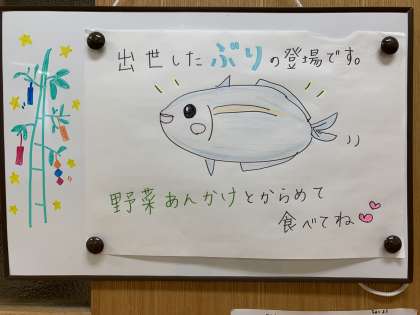 出世したぶりの登場です。
野菜あんかけとからめて
食べてね